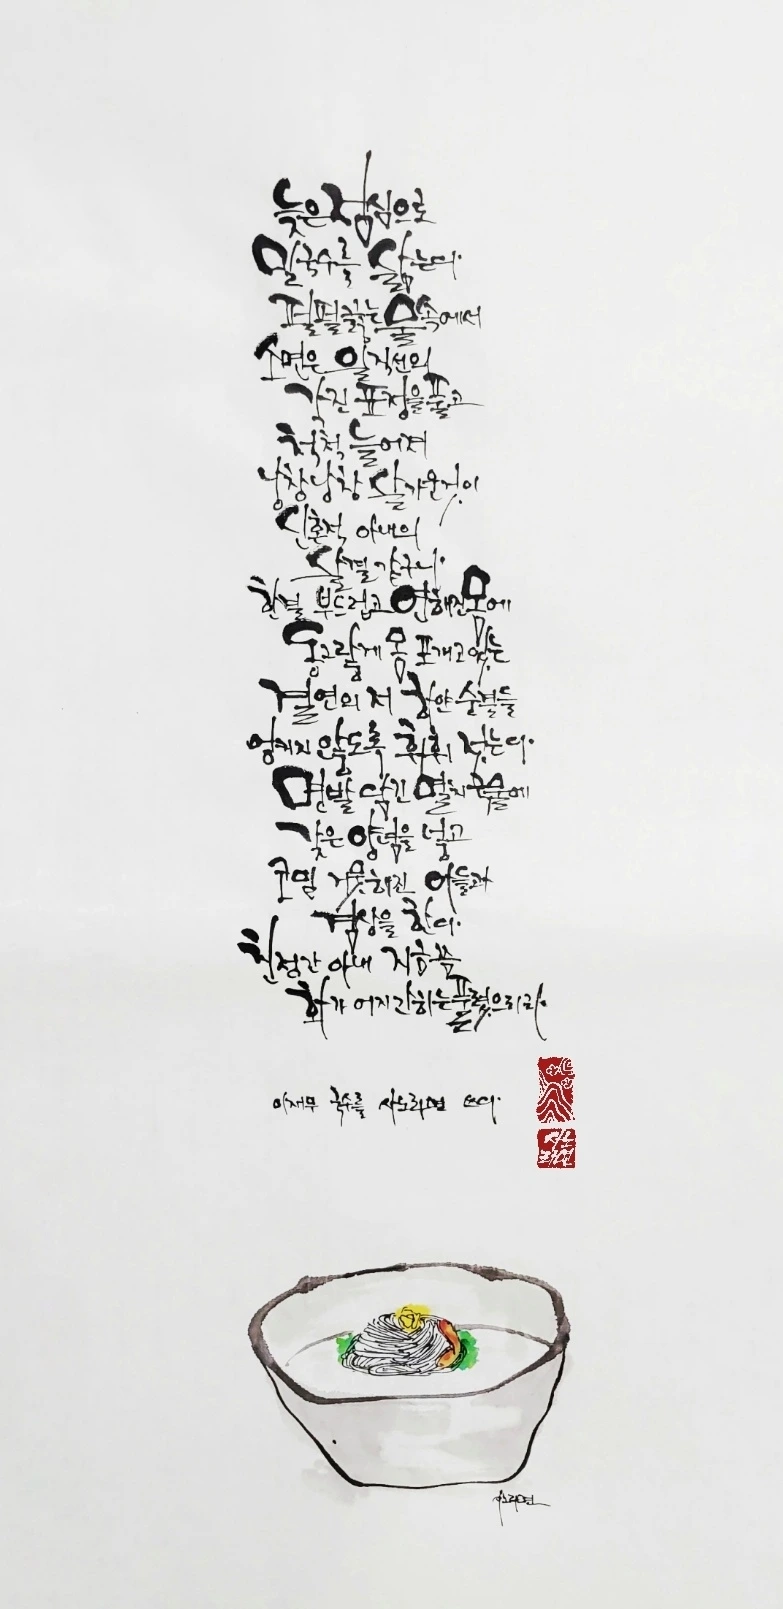 늦은 점심으로
밀국수를 삶는다.
펄펄 끓는 물 속에서
소면은 일직선의
각진 표정을 풀고
척척 늘어져
낭창낭창 살가운 것이
신혼적 아내의
살결 같구나.
한결 부드럽고 연해진 몸에
동그랗게 몸 포개고 있는
결연의 저 하얀 순결들
엉키지 않도록 휘휘 젓는다.
면발 담긴 멸치국물에
갖은 양념을 넣고
코밑 거뭇해진 아들과
겸상을 한다.
친정간 아내 지금쯤
화가 어지간히는 풀렸으리라.
이재무 국수를 사노라면 쓰다.